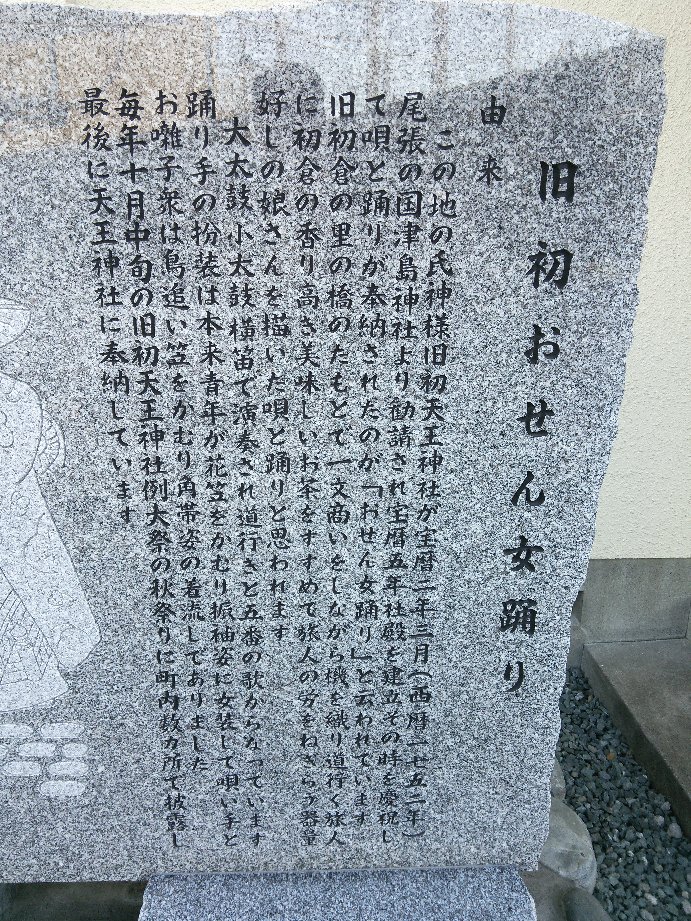 旧初おせん女踊り
由来
この地の氏神様旧初天王神社が宝暦二年三月(西暦一七五二年)
尾張の国津島神社より勧請され宝暦五年社殿を建立その時を慶祝し
て唄と踊りが奉納されたのが「おせん女踊り」と云われています
旧初倉の里の橋のたもとで一文商いをしながら機を織り道行く旅人
に初倉の香り高き美味しいお茶をすすめて旅人の労をねぎらう器量
好しの娘さんを描いた唄と踊りと思われます
大太鼓小太鼓横笛で演奏され道行きと五番の歌からなっています
踊り手の扮装は本来青年が花笠をかむり振袖姿に女装して唄い手と
お囃子衆は鳥追い笠をかむり角帯姿の着流しでありました
毎年十月中旬の旧初天王神社例大祭の秋祭りに町内数カ所で披露し
最後に天王神社に奉納しています